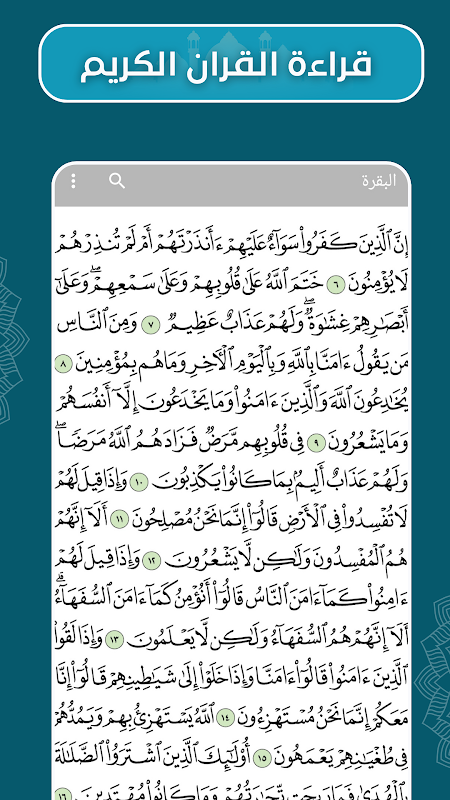 قراءة القران الكريم
البقرة
إِنَّ ٱلَّذِينَ كَفَرُوا۟ سَوَآءٌ عَلَيْهِمْ ءَأَنذَرْتَهُمْ أَمْ لَمْ تُنذِرْهُمْ
لَا يُؤْمِنُونَ ٦ خَتَمَ ٱللَّهُ عَلَىٰ قُلُوبِهِمْ وَعَلَىٰ سَمْعِهِمْ ۖ وَعَلَىٰٓ
أَبْصَـٰرِهِمْ غِشَـٰوَةٌ ۖ وَلَهُمْ عَذَابٌ عَظِيمٌ ٧ وَمِنَ ٱلنَّاسِ
مَن يَقُولُ ءَامَنَّا بِٱللَّهِ وَبِٱلْيَوْمِ ٱلْـَٔاخِرِ وَمَا هُم بِمُؤْمِنِينَ ٨
يُخَـٰدِعُونَ ٱللَّهَ وَٱلَّذِينَ ءَامَنُوا۟ وَمَا يَخْدَعُونَ إِلَّآ أَنفُسَهُمْ
وَمَا يَشْعُرُونَ ٩ فِى قُلُوبِهِم مَّرَضٌ فَزَادَهُمُ ٱللَّهُ مَرَضًا ۖ
وَلَهُمْ عَذَابٌ أَلِيمٌۢ بِمَا كَانُوا۟ يَكْذِبُونَ ١٠ وَإِذَا قِيلَ لَهُمْ
لَا تُفْسِدُوا۟ فِى ٱلْأَرْضِ قَالُوٓا۟ إِنَّمَا نَحْنُ مُصْلِحُونَ ١١ أَلَآ إِنَّهُمْ
هُمُ ٱلْمُفْسِدُونَ وَلَـٰكِن لَّا يَشْعُرُونَ ١٢ وَإِذَا قِيلَ لَهُمْ
ءَامِنُوا۟ كَمَآ ءَامَنَ ٱلنَّاسُ قَالُوٓا۟ أَنُؤْمِنُ كَمَآ ءَامَنَ ٱلسُّفَهَآءُ ۗ
أَلَآ إِنَّهُمْ هُمُ ٱلسُّفَهَآءُ وَلَـٰكِن لَّا يَعْلَمُونَ ١٣ وَإِذَا لَقُوا۟
ٱلَّذِينَ ءَامَنُوا۟ قَالُوٓا۟ ءَامَنَّا وَإِذَا خَلَوْا۟ إِلَىٰ شَيَـٰطِينِهِمْ قَالُوٓا۟ إِنَّا
مَعَكُمْ إِنَّمَا نَحْنُ مُسْتَهْزِءُونَ ١٤ ٱللَّهُ يَسْتَهْزِئُ بِهِمْ وَيَمُدُّهُمْ
فِى طُغْيَـٰنِهِمْ يَعْمَهُونَ ١٥ أُو۟لَـٰٓئِكَ ٱلَّذِينَ ٱشْتَرَوُا۟ ٱلضَّلَـٰلَةَ
بِٱلْهُدَىٰ فَمَا رَبِحَت تِّجَـٰرَتُهُمْ وَمَا كَانُوا۟ مُهْتَدِينَ ١٦